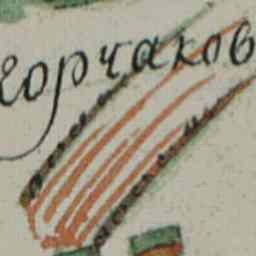 горчаков